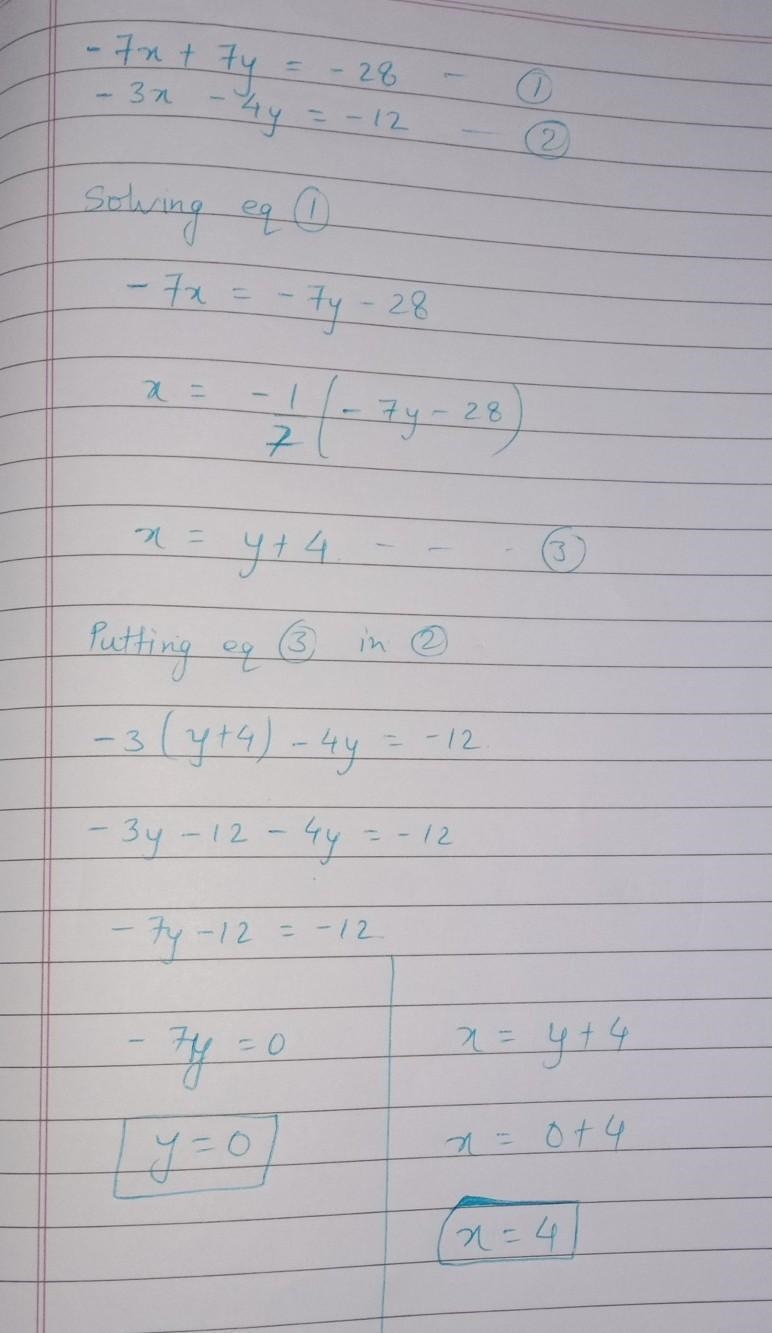 -7x + 7y = -28 - ①
-3x - 4y = -12 - ②
Solving eq ①
-7x = -7y - 28
x = -1/7 (-7y - 28)
x = y + 4 - - - ③
Putting eq ③ in ②
-3(y+4) - 4y = -12
-3y - 12 - 4y = -12
-7y - 12 = -12
-7y = 0
y = 0
x = y + 4
x = 0 + 4
x = 4